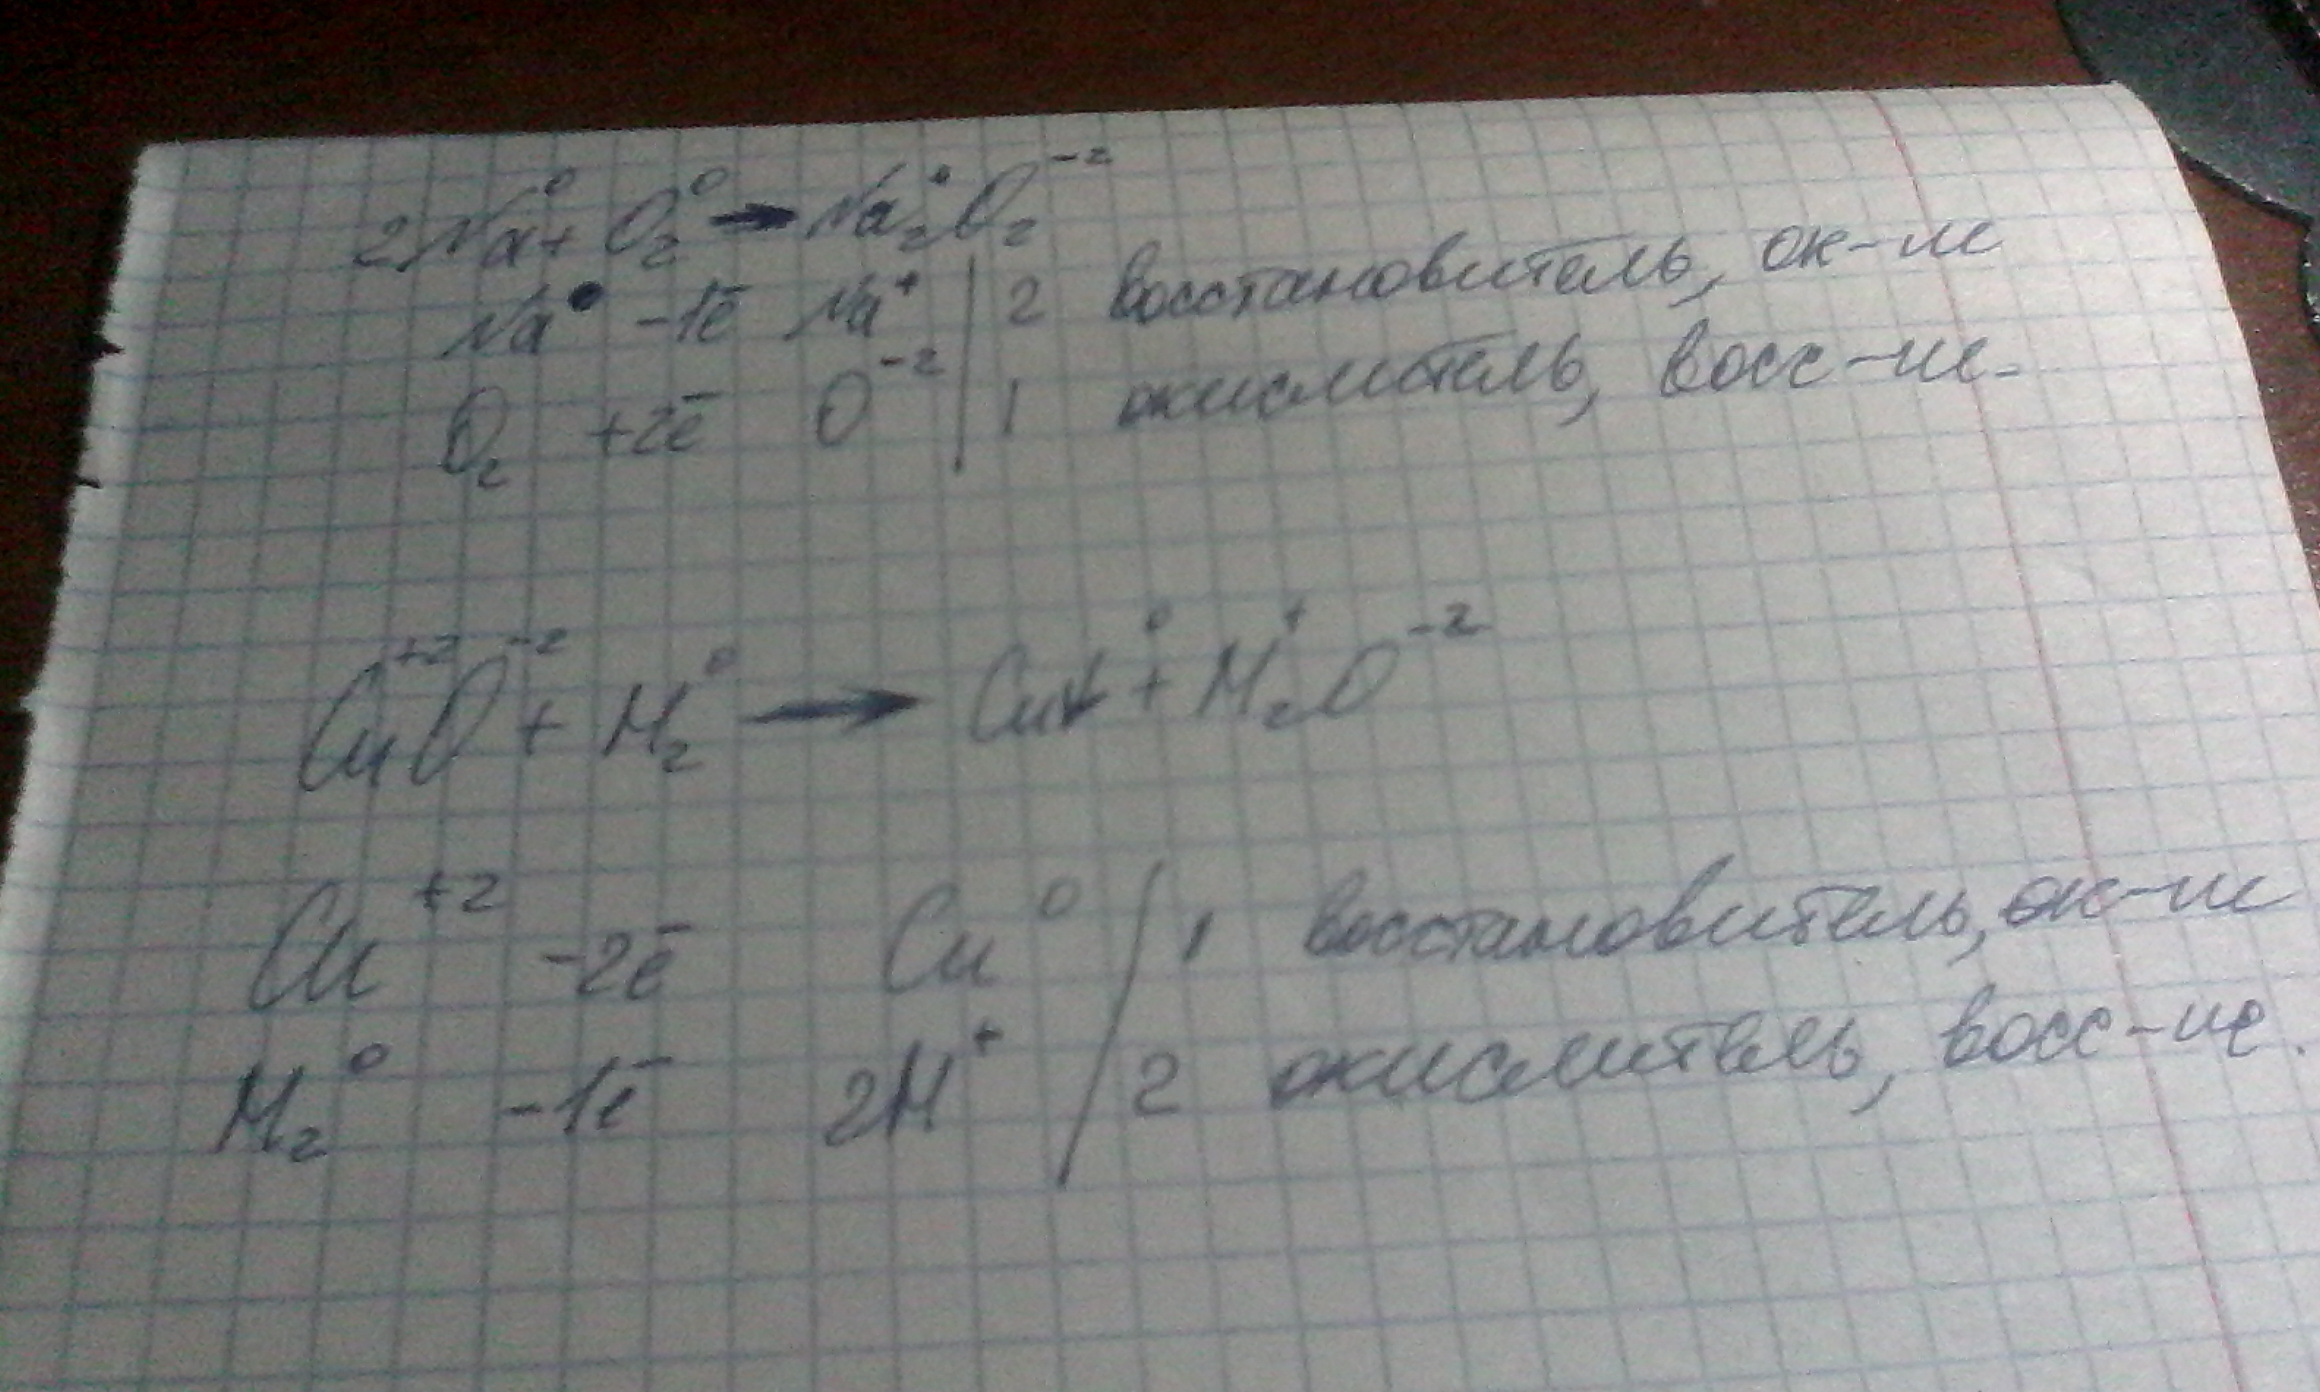 2Na⁰ + O₂⁰ → Na₂⁺O₂⁻²
Na⁰ -1ē Na⁺ | 2 восстановитель, ок-ле
O₂ +2ē O⁻² | 1 окислитель, восс-ие.
Cu⁺²O⁻² + H₂⁰ → Cu↓⁰ + H₂⁺O⁻²
Cu⁺² -2ē Cu⁰ | 1 восстановитель, ок-ие
H₂⁰ -1ē 2H⁺ | 2 окислитель, восс-ие.